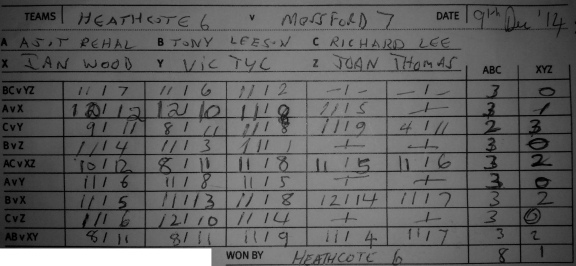 TEAMS HEATHCOTE 6 V MOSSFORD 7 DATE 9th Dec '14
A ASIT REHAL B TONY LEESON C RICHARD LEE
X IAN WOOD Y VIC TYC Z JOAN THOMAS ABC XYZ
BCvYZ 11/7 11/6 11/2 -/- -/- 3 0
AvX 10/12 12/10 11/8 11/5 + 3 1
CvY 9/11 8/11 11/8 11/9 4/11 2 3
BvZ 11/4 11/3 11/1 + + 3 0
ACvXZ 10/12 8/11 11/8 11/5 11/6 3 2
AvY 11/6 11/8 11/5 + + 3 0
BvX 11/5 11/13 11/8 12/14 11/7 3 2
CvZ 11/6 12/10 11/4 + + 3 0
ABvXY 8/11 8/11 11/9 11/4 11/7 3 2
WON BY HEATHCOTE 6 8 1